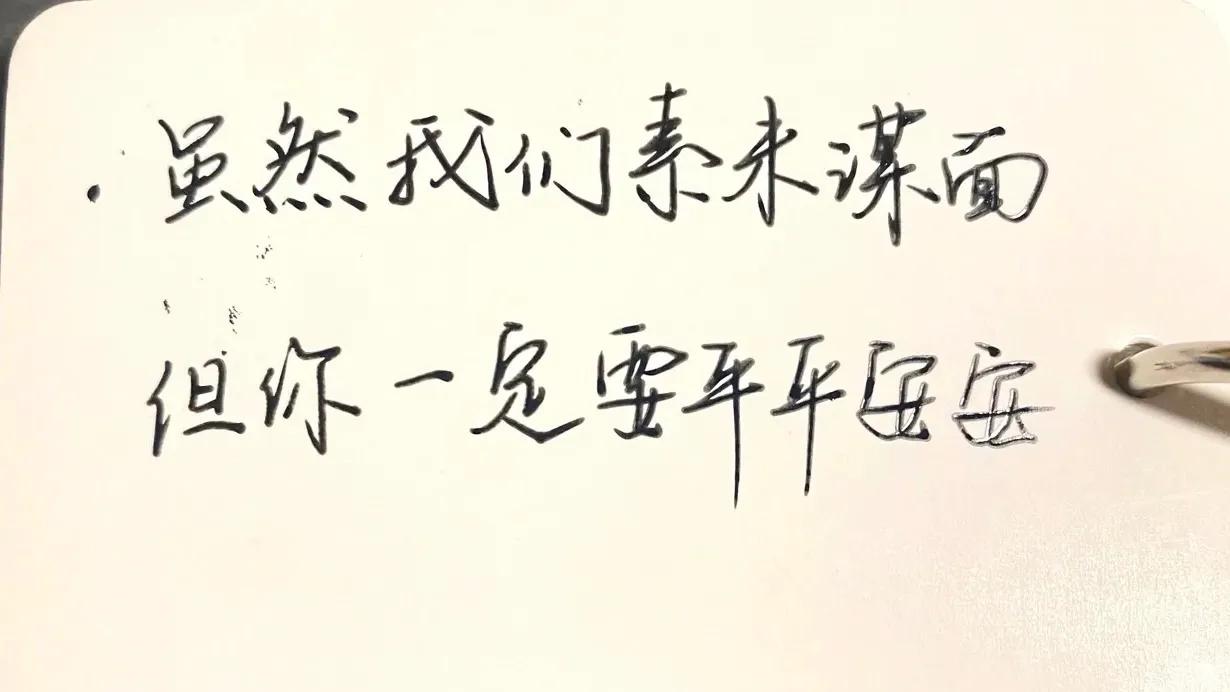 虽然我们素未谋面
但你一定要平平安安